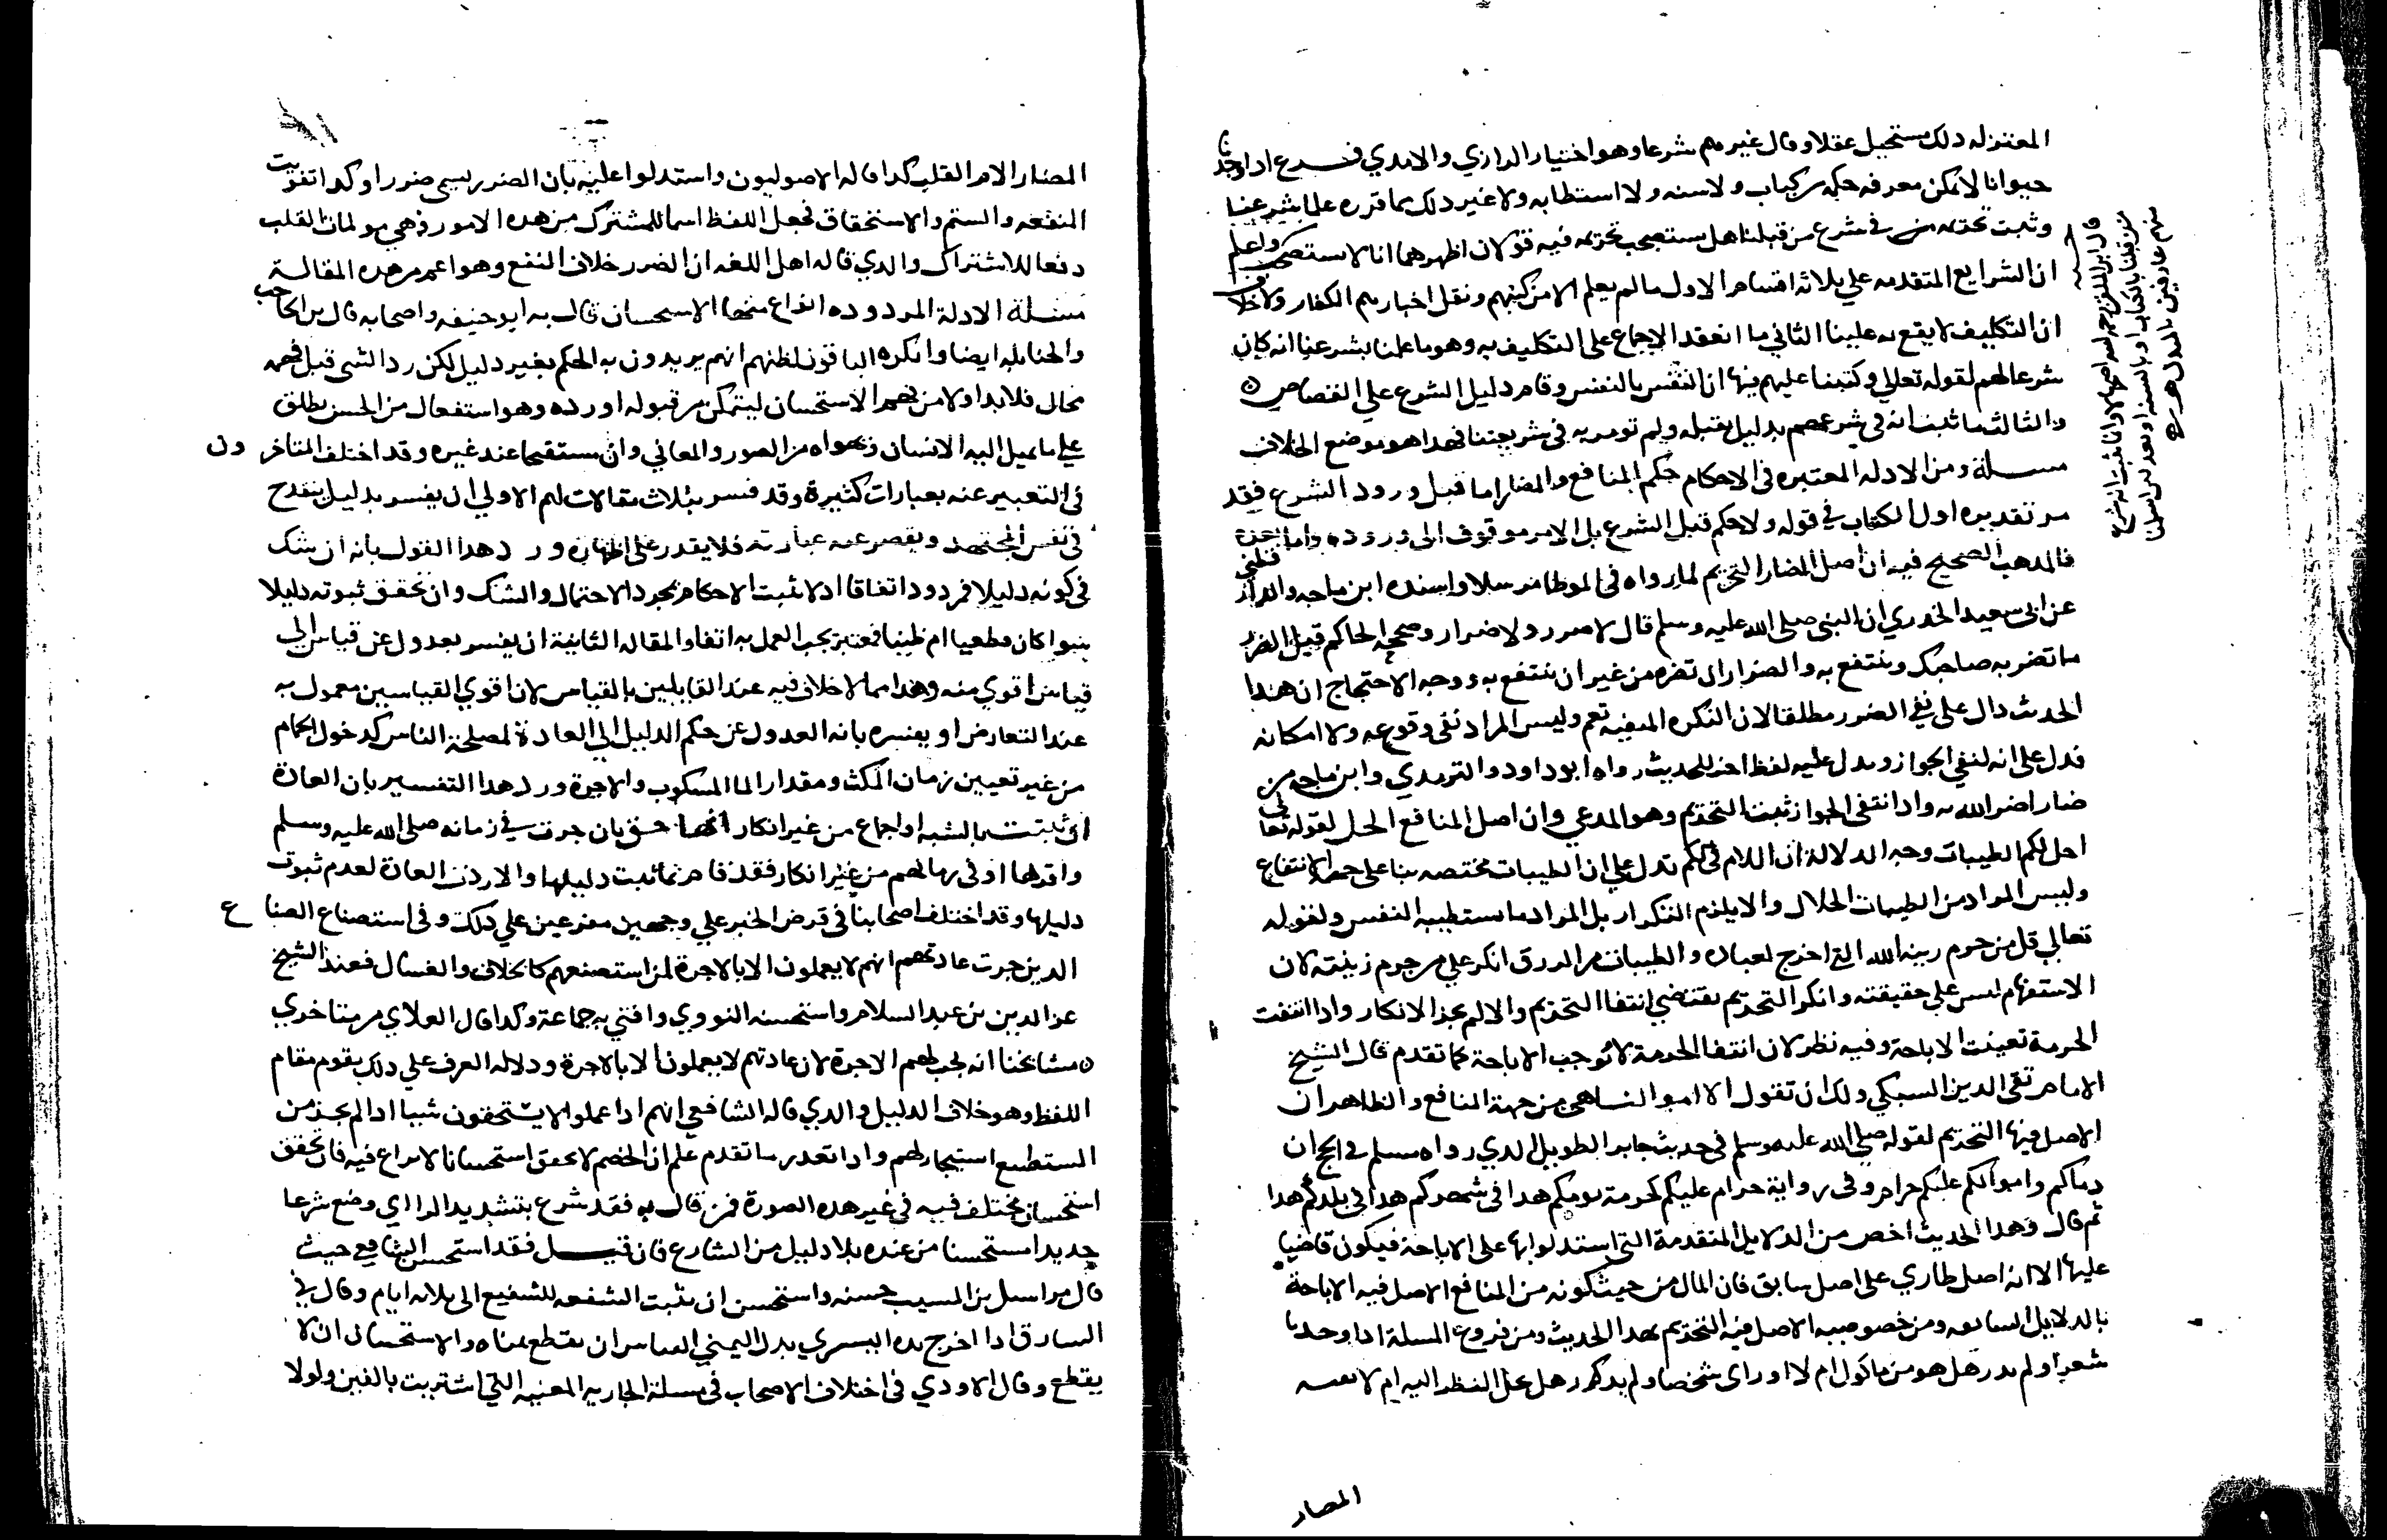 المعتزله دلك مستحيل عقلا وقال غيرهم شرعا وهو اختيار الرازي والامدي فرع ادا وجدنا
حيوانا لا يمكن معرفه حكمه من كتاب ولا سنه ولا استطابه ولا غير دلك مما قرره علما شرعنا
وثبت تحريمه في شرع من قبلنا هل يستصحب تحريمه فيه قولان اظهرهما انا لا نستصحب واعلم
ان الشرايع المتقدمه علي ثلاثه اقسام الاول ما لم يعلم الا من كتبهم ونقل اخبارهم الكفار ولا خلاف
ان التكليف لا يقع به علينا الثاني ما انعقد الاجماع على التكليف به وهو ما علمنا بشرعنا انه كان
شرعا لهم لقوله تعالي وكتبنا عليهم فيها ان النفس بالنفس وقام دليل الشرع علي القصاص
والثالث ما ثبت انه في شرعهم بدليل يقبله ولم نومر به في شريعتنا فهدا هو موضع الخلاف
مسلة ومن الادله المعتبره في الاحكام حكم المنافع والمضار اما قبل ورود الشرع فقد
مر تقديره اول الكتاب في قوله ولا حكم قبل الشرع بل الامر موقوف الى وروده واما بعده
فالمدهب الصحيح فيه ان اصل المضار التحريم لما رواه في الموطا مرسلا واسنده ابن ماجه والدارقطني
عن ابي سعيد الخدري ان النبي صلى الله عليه وسلم قال لا ضرر ولا ضرار وصححه الحاكم قيل الضرر
ما تضر به صاحبك وتنتفع به والضرار ان تضره من غير ان تنتفع به ووجه الاحتجاج ان هذا
الحديث دال على نفي الضرر مطلقا لان النكره المنفيه تعم وليس المراد نفي وقوعه ولا امكانه
فدل على انه لنفي الجواز ويدل عليه لفظ اخر للحديث رواه ابو داود والترمدي وابن ماجه من
ضار اضر الله به وادا انتفى الجواز ثبت التحريم وهو المدعي وان اصل المنافع الحل لقوله تعالى
احل لكم الطيبات وجه الدلالة ان اللام في لكم تدل علي ان الطيبات مختصه بنا على جهة الانتفاع
وليس المراد من الطيبات الحلال والا يلزم التكرار بل المراد ما تستطيبه النفس ولقوله
تعالي قل من حرم زينه الله التي اخرج لعباده والطيبات من الرزق انكر علي من حرم زينته لان
الاستفهام ليس علي حقيقته وانكر التحريم يقتضي انتفا التحريم والا لم يجز الانكار وادا انتفت
الحرمة تعينت الاباحة وفيه نظر لان انتفا الحرمة لا توجب الاباحة كما تقدم قال الشيخ
الامام تقي الدين السبكي ولك ان تقول الاموال من جهة المنافع والظاهر ان
الاصل فيها التحريم لقوله صلي الله عليه وسلم في حديث جابر الطويل الدي رواه مسلم في الحج ان
دماكم واموالكم عليكم حرام وفي رواية حرام عليكم كحرمة يومكم هدا في شهركم هدا في بلدكم هدا
ثم قال وهدا الحديث اخص من الدلايل المتقدمة التي استدلوا بها على الاباحة فيكون قاضيا
عليها الا انه اصل طاري على اصل سابق فان المال من حيث كونه من المنافع الاصل فيه الاباحة
بالدلايل السابقه ومن خصوصيه الاصل فيه التحريم بهدا الحديث ومن فروع المسلة ادا وجدنا
شعرا ولم يدر هل هو من ماكول ام لا او راى شخصا ولم يدكر هل يحل النظر اليه ام لا
المضار
قال ابن الملقن رحمه الله
من قبلنا بالكتاب او بالسنه او بعدلين اسلما
منهم عارفين بالمبدل
المضار الام القلب كدا قاله الاصوليون واستدلوا عليه بان الضرر يسمى ضررا وكدا تفويت
المنفعه والشتم والاستخفاف فجعل اللفظ اسما للمشترك من هده الامور وهي مولمات القلب
دفعا للاشتراك والدي قاله اهل اللغه ان الضرر خلاف النفع وهو اعم من هده المقالة
مسلة الادلة المردوده انواع منها الاستحسان قال به ابو حنيفه واصحابه قال بن الحاجب
والحنابله ايضا وانكره الباقون لظنهم انهم يريدون به الحكم بغير دليل لكن رد الشي قبل فهمه
محال فلا بد اولا من فهم الاستحسان ليتمكن من قبوله او رده وهو استفعال من الحسن يطلق
علي ما يميل اليه الانسان ويهواه من الصور والمعاني وان مستقبحا عند غيره وقد اختلف المتاخرون
في التعبير عنه بعبارات كثيرة وقد فسر بثلاث مقالات لهم الاولي ان يفسر بدليل ينقدح
في نفس المجتهد وتقصر عنه عبارته فلا يقدر على اظهاره ورد هدا القول بانه ان شك
في كونه دليلا فمردود اتفاقا اد لا تثبت الاحكام بمجرد الاحتمال والشك وان تحقق ثبوته دليلا
سوا كان قطعيا ام ظنيا فمعتبر يجب العمل به اتفاقا والمقاله الثانية ان يفسر بعدول عن قياس الى
قياس اقوي منه وهدا مما لا خلاف فيه عند القايلين بالقياس لان اقوي القياسين معمول به
عند التعارض او يفسره بانه العدول عن حكم الدليل الي العادة لمصلحة الناس كدخول الحمام
من غير تعيين زمان المكث ومقدار الما المسكوب والاجرة ورد هدا التفسير بان العادة
ان ثبتت بالسنه او اجماع من غير انكار انها حق بان جرت في زمانه صلى الله عليه وسلم
واقرها او في زمانهم من غير انكار فقد قام بما ثبت دليلها والا ردت العادة لعدم ثبوت
دليلها وقد اختلف اصحابنا في قرض الخبز علي وجهين مفرعين علي دلك وفي استصناع الصناع
الدين جرت عادتهم انهم لا يعملون الا بالاجرة لمن استصنعهم كالحلاق والغسال فعند الشيخ
عز الدين بن عبد السلام واستحسنه النووي وافتي به جماعة وكدا قال العلاي من متاخري
مشايخنا انه يجب لهم الاجرة لان عادتهم لا يعملون الا بالاجرة ودلاله العرف علي دلك يقوم مقام
اللفظ وهو خلاف الدليل والدي قاله الشافعي انهم ادا عملوا لا يستحقون شيا ادا لم يجز من
المستصنع استيجار لهم وادا تقرر ما تقدم علم ان الخصم لا يحقق استحسانا لا نزاع فيه فان تحقق
استحسان مختلف فيه في غير هده الصورة فمن قال به فقد شرع بتشديد الرا اي وضع شرعا
جديدا مستحسنا من عنده بلا دليل من الشارع فان قيل فقد استحسن الشافعي حيث
قال مراسيل بن المسيب حسنه واستحسن ان تثبت الشفعه للشفيع الى ثلاثه ايام وقال في
السارق ادا اخرج يده اليسري بدل اليمني القياس ان تقطع يمناه والاستحسان ان لا
يقطع وقال الاودي في اختلاف الاصحاب في مسلة الجاريه المغنيه التي اشتريت بالفين ولولا